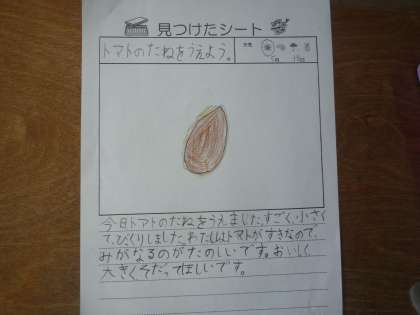 見つけたシート
トマトのたねをうえよう。
天気
今日トマトのたねをうえました。すごく、小さく
て、びくりしました。わたしはトマトがすきなので、
みがなるのがたのしいです。おいしく
大きくそだってほしいです。